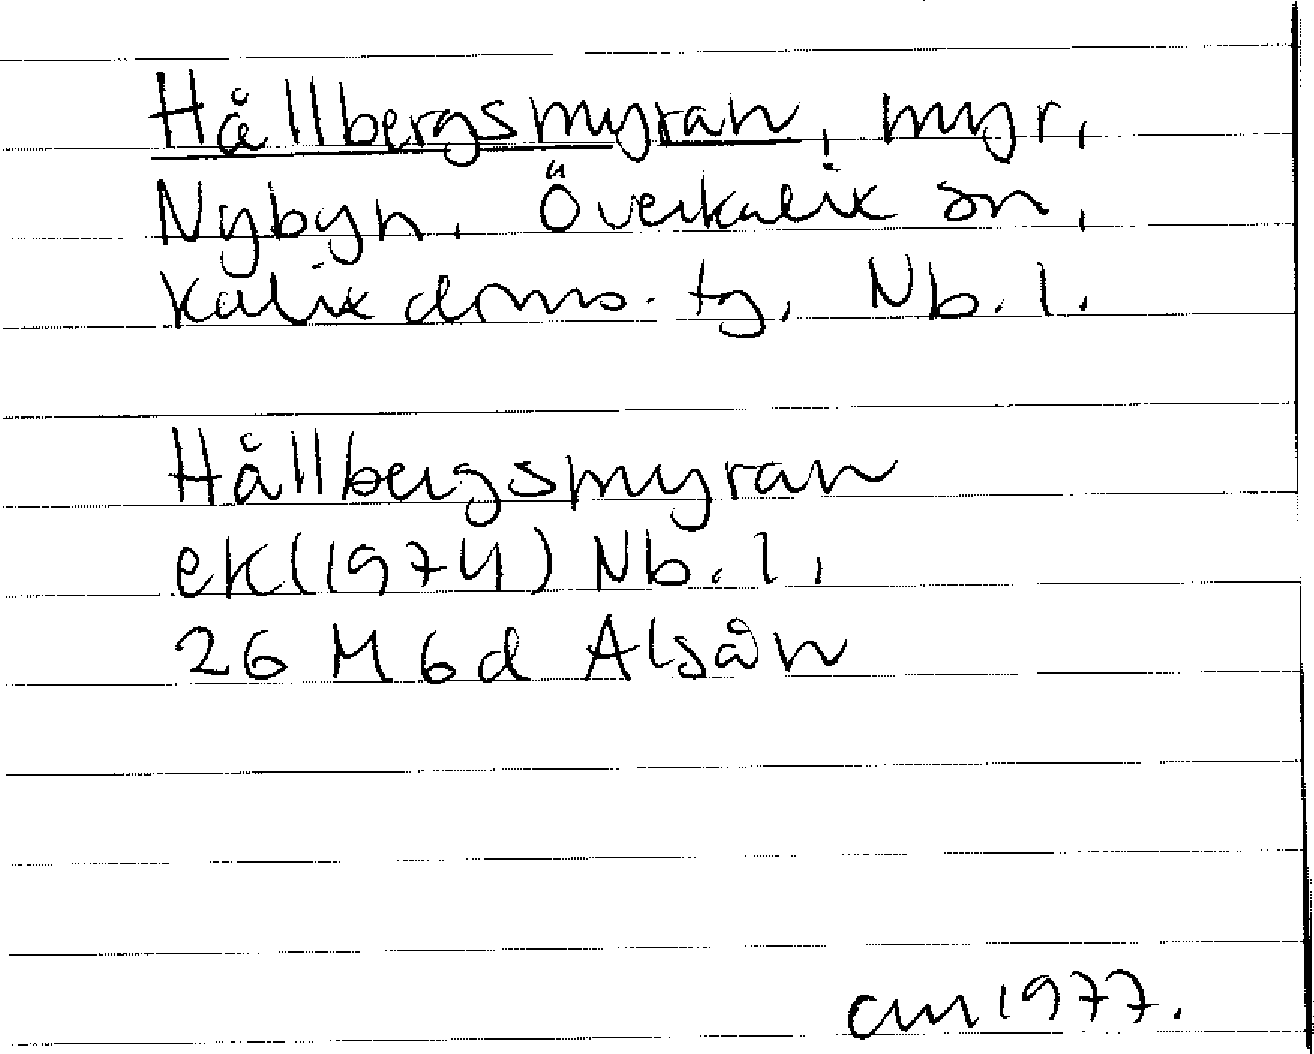 Hållbergsmyran, myr,
Nybyn, Överkalix sn,
Kalix doms. tg, Nb. l.
Hållbergsmyran
ek (1974) Nb. l,
26 M 6d Alsån
am 1977.